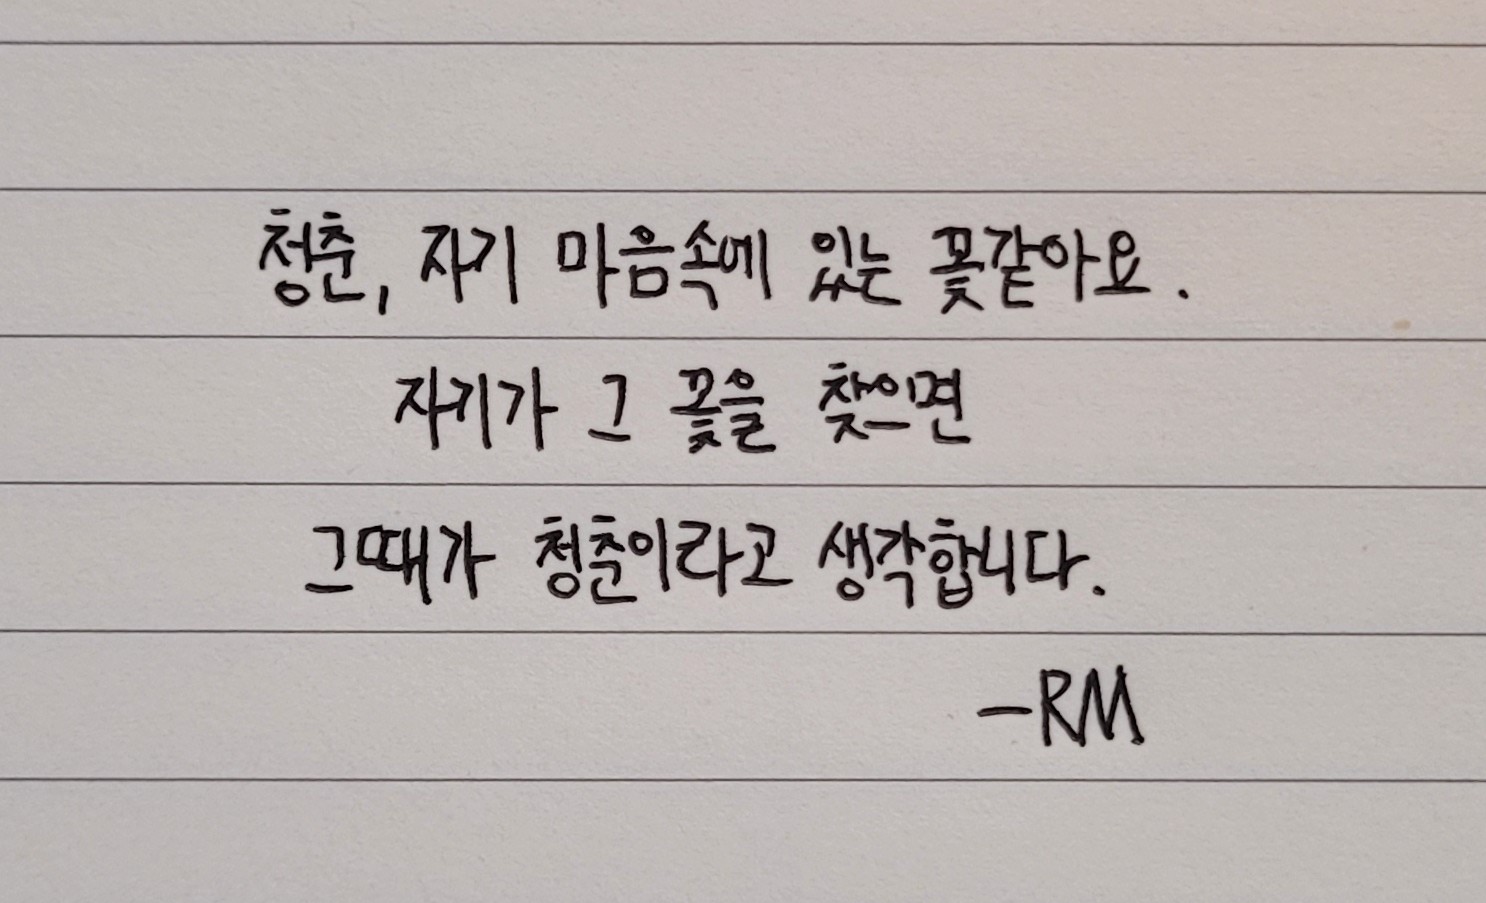 청춘, 자기 마음속에 있는 꽃같아요.
자기가 그 꽃을 찾으면
그때가 청춘이라고 생각합니다.
-RM